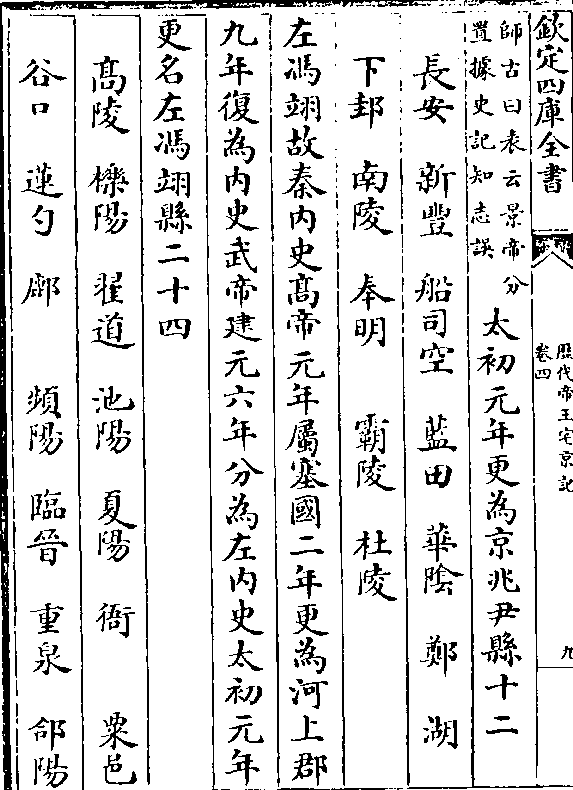 欽定四庫全書
歷代帝王宅京記
卷四
九
師古曰表云景帝分
置據史記知志誤
太初元年更為京兆尹縣十二
長安 新豐 船司空 藍田 華陰 鄭 湖
下邽 南陵 奉明 霸陵 杜陵
左馮翊故秦内史髙帝元年屬塞國二年更為河上郡
九年復為内史武帝建元六年分為左内史太初元年
更名左馮翊縣二十四
髙陵 櫟陽 翟道 池陽 夏陽 衙 粟邑
谷口 蓮勺 鄜 頻陽 臨晉 重泉 郃陽